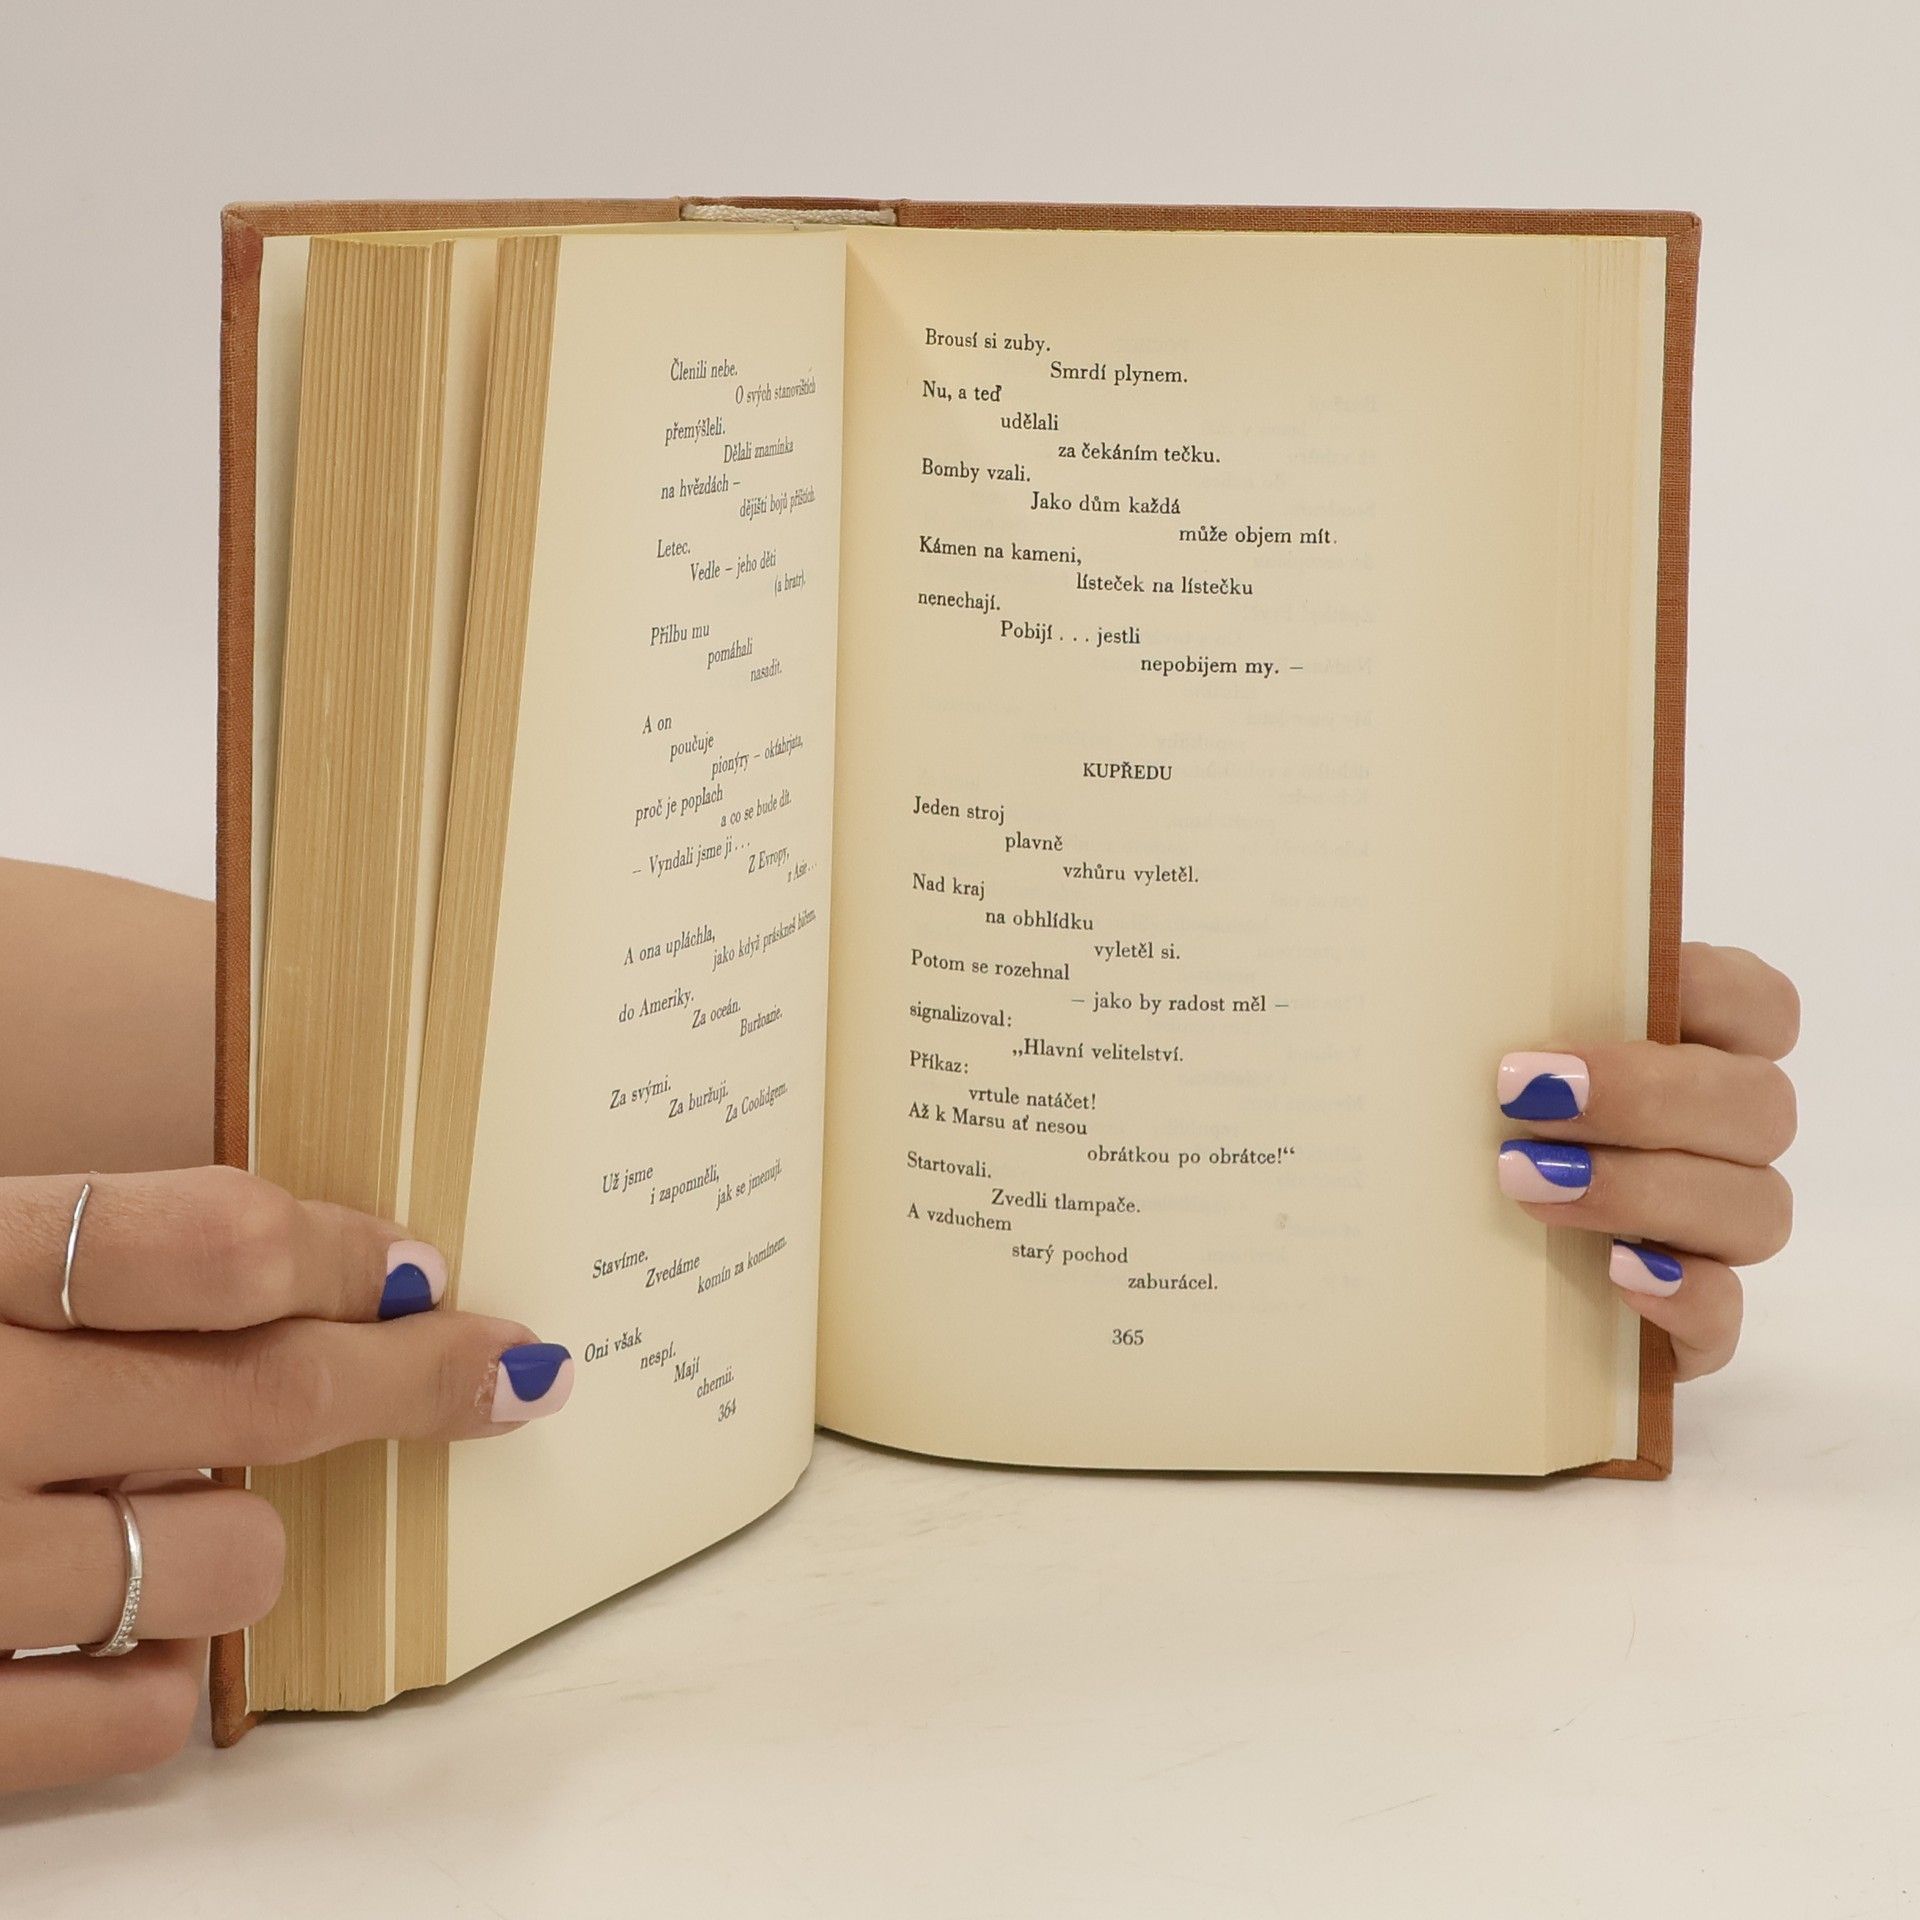 Členili nebe.
O svých stanovištích
přemýšleli.
Dělali znamínka
na hvězdách –
dějišti bojů příštích.
Letec.
Vedle – jeho děti
(a bratr).
Přilbu mu
pomáhali
nasadit.
A on
poučuje
pionýry – okťabrjata,
proč je poplach
a co se bude dít.
– Vyndali jsme ji . . .
Z Evropy,
z Asie . . .
A ona upláchla,
jako když práskneš bičem.
do Ameriky.
Za oceán.
Buržoasie.
Za svými.
Za buržuji.
Za Coolidgem.
Už jsme
i zapomněli,
jak se jmenují.
Stavíme.
Zvedáme
komín za komínem.
Oni však
nespí.
Mají
chemii.
364
Brousí si zuby.
Smrdí plynem.
Nu, a teď
udělali
za čekáním tečku.
Bomby vzali.
Jako dům každá
může objem mít.
Kámen na kameni,
lísteček na lístečku
nenechají.
Pobijí . . . jestli
nepobijem my. –
KUPŘEDU
Jeden stroj
plavně
vzhůru vyletěl.
Nad kraj
na obhlídku
vyletěl si.
Potom se rozehnal
– jako by radost měl –
signalizoval:
„Hlavní velitelství.
Příkaz:
vrtule natáčet!
Až k Marsu ať nesou
obrátkou po obrátce!“
Startovali.
Zvedli tlampače.
A vzduchem
starý pochod
zaburácel.
365